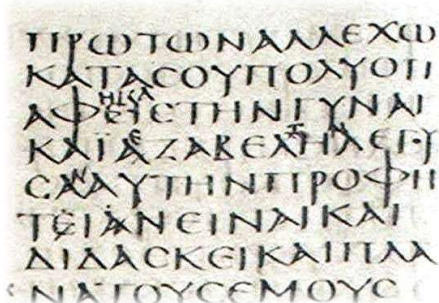 ΠΡΩΤΩΝΑΛΛΕΧΩ
ΚΑΤΑϹΟΥΠΟΛΥΟΤΙ
ΑΦΕΙϹΤΗΝΓΥΝΑΙ
ΚΑΪΑΖΑΒΕΛΗΛΕΓΥ
ϹΑΑΥΤΗΝΠΡΟΦΗ
ΤΕΙΑΝΕΙΝΑΙΚΑΙ
ΔΙΔΑϹΚΕΙΚΑΙΠΛΑ
ΝΑΤΟΥϹΕΜΟΥϹ